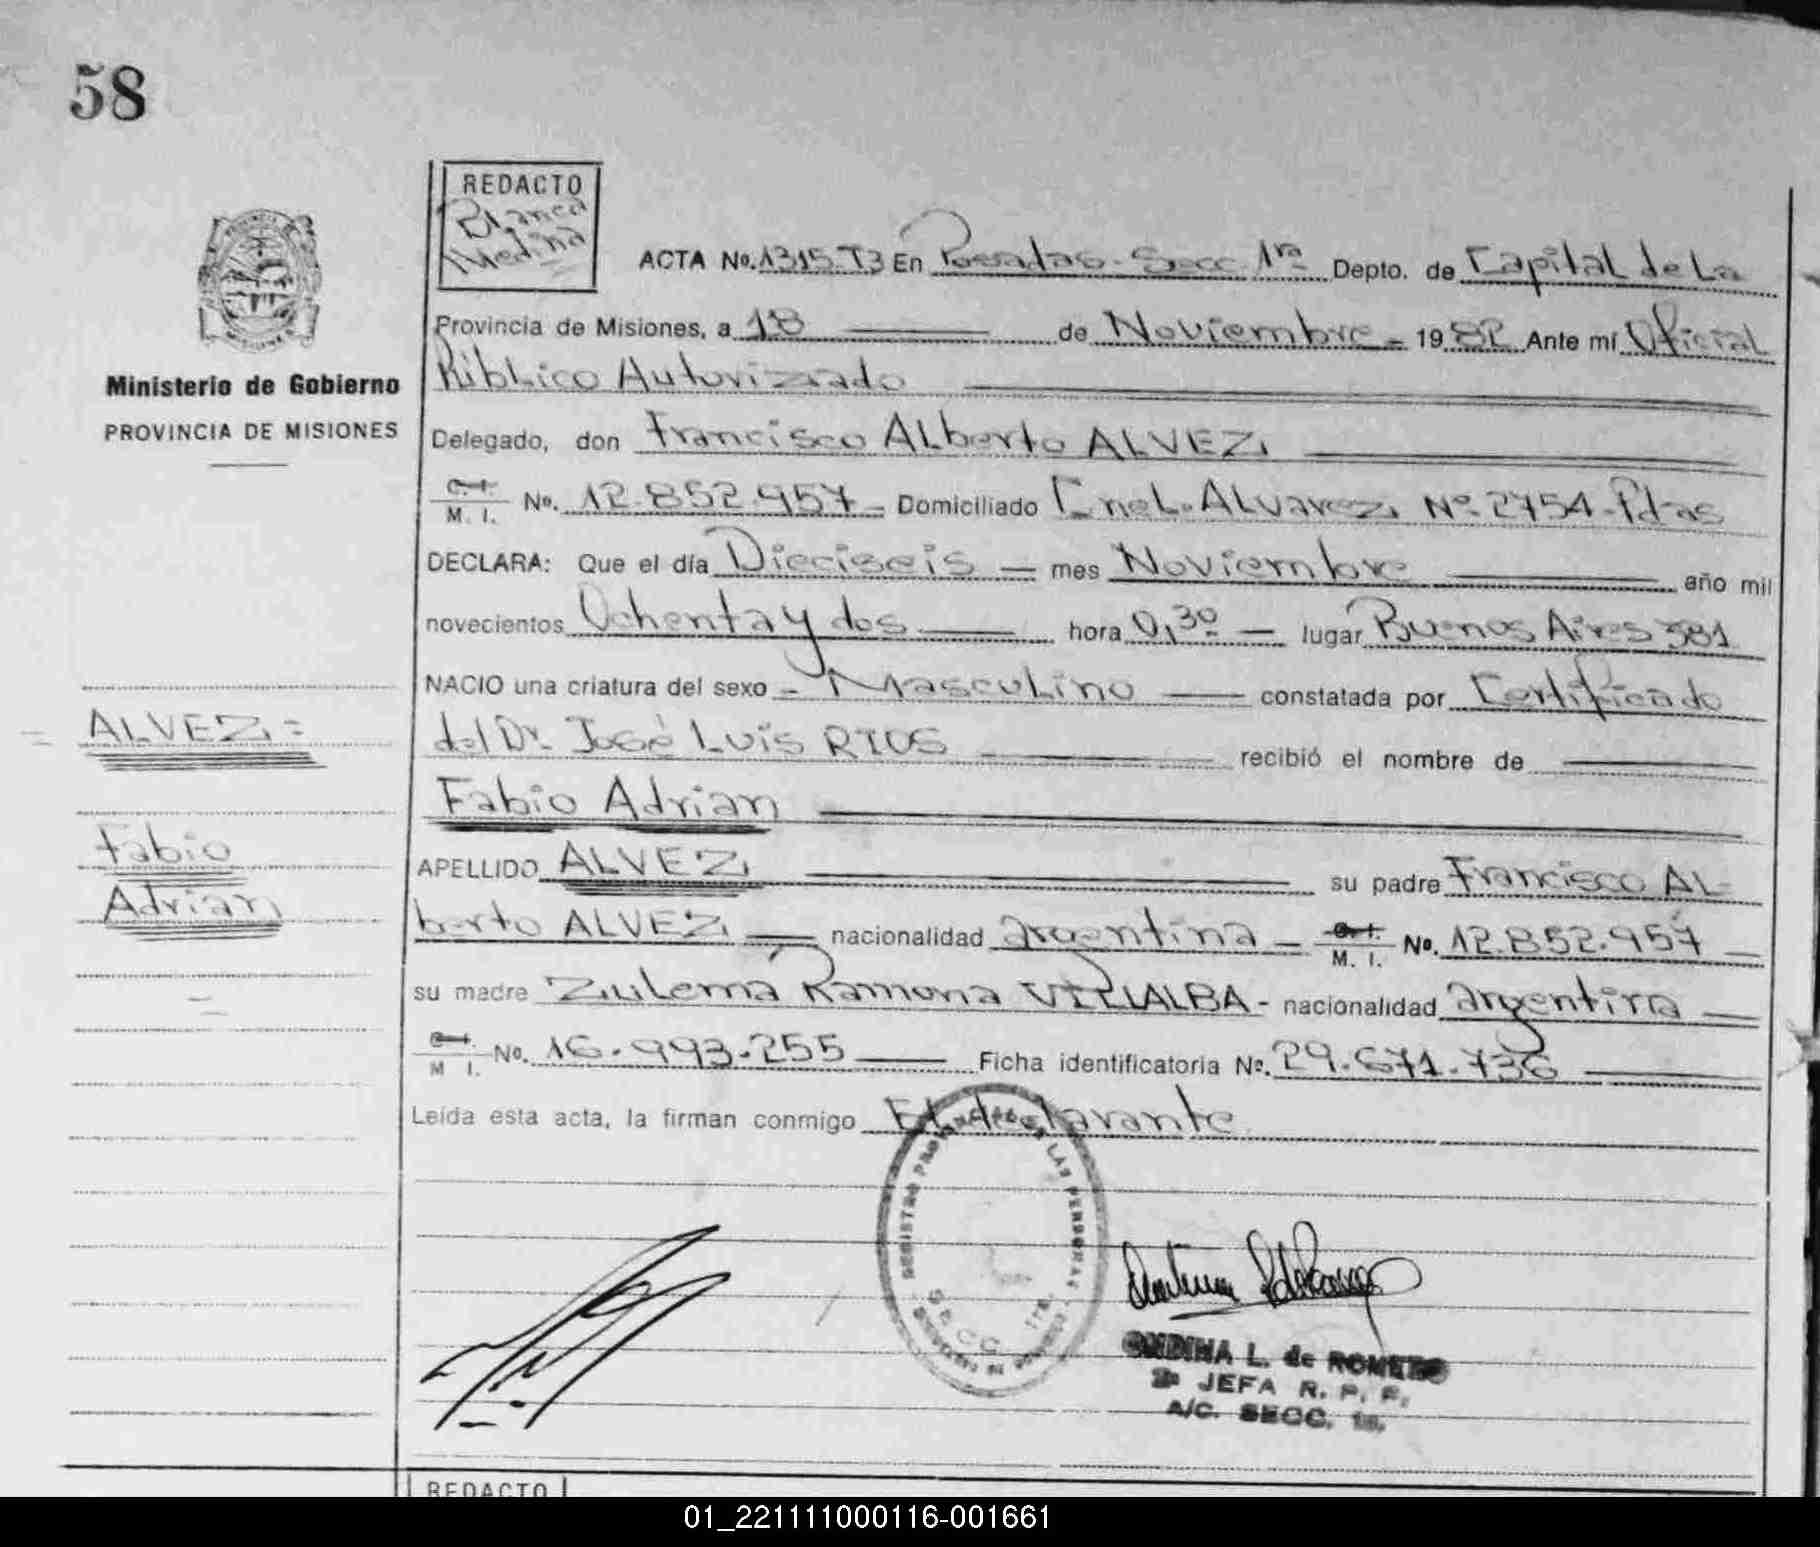 58
REDACTO
Blanca
Medina
ACTA No. 1315-T3 En Posadas-Secc. 1ra Depto. de Capital de La
Provincia de Misiones, a 18 de Noviembre 1982 Ante mí Oficial
Público Autorizado
Ministerio de Gobierno
PROVINCIA DE MISIONES
Delegado, don Francisco ALberto ALVEZ
C. I. M. I. No. 12.852.957 Domiciliado Cnel. ALvarez Nº 2754-Pdas
DECLARA: Que el día Dieciseis mes Noviembre año mil
novecientos Ochenta y dos hora 0,30 lugar Buenos Aires 581
NACIO una criatura del sexo Masculino constatada por Certificado
del Dr. José Luis RIOS recibió el nombre de
Fabio Adrian
APELLIDO ALVEZ su padre Francisco AL
berto ALVEZ nacionalidad argentina C. I. M. I. No. 12.852.957
su madre Zulema Ramona VILLALBA - nacionalidad argentina
C. I. M. I. No. 16.993.255 Ficha identificatoria No. 29.671.736
Leída esta acta, la firman conmigo El declarante
= ALVEZ =
Fabio
Adrian
REGISTRO PROVINCIAL DE LAS PERSONAS
SECC. 1ra.
L. de ROMERO
JEFA R. P. P.
A/C. SECC. 1a.
REDACTO
01_221111000116-001661